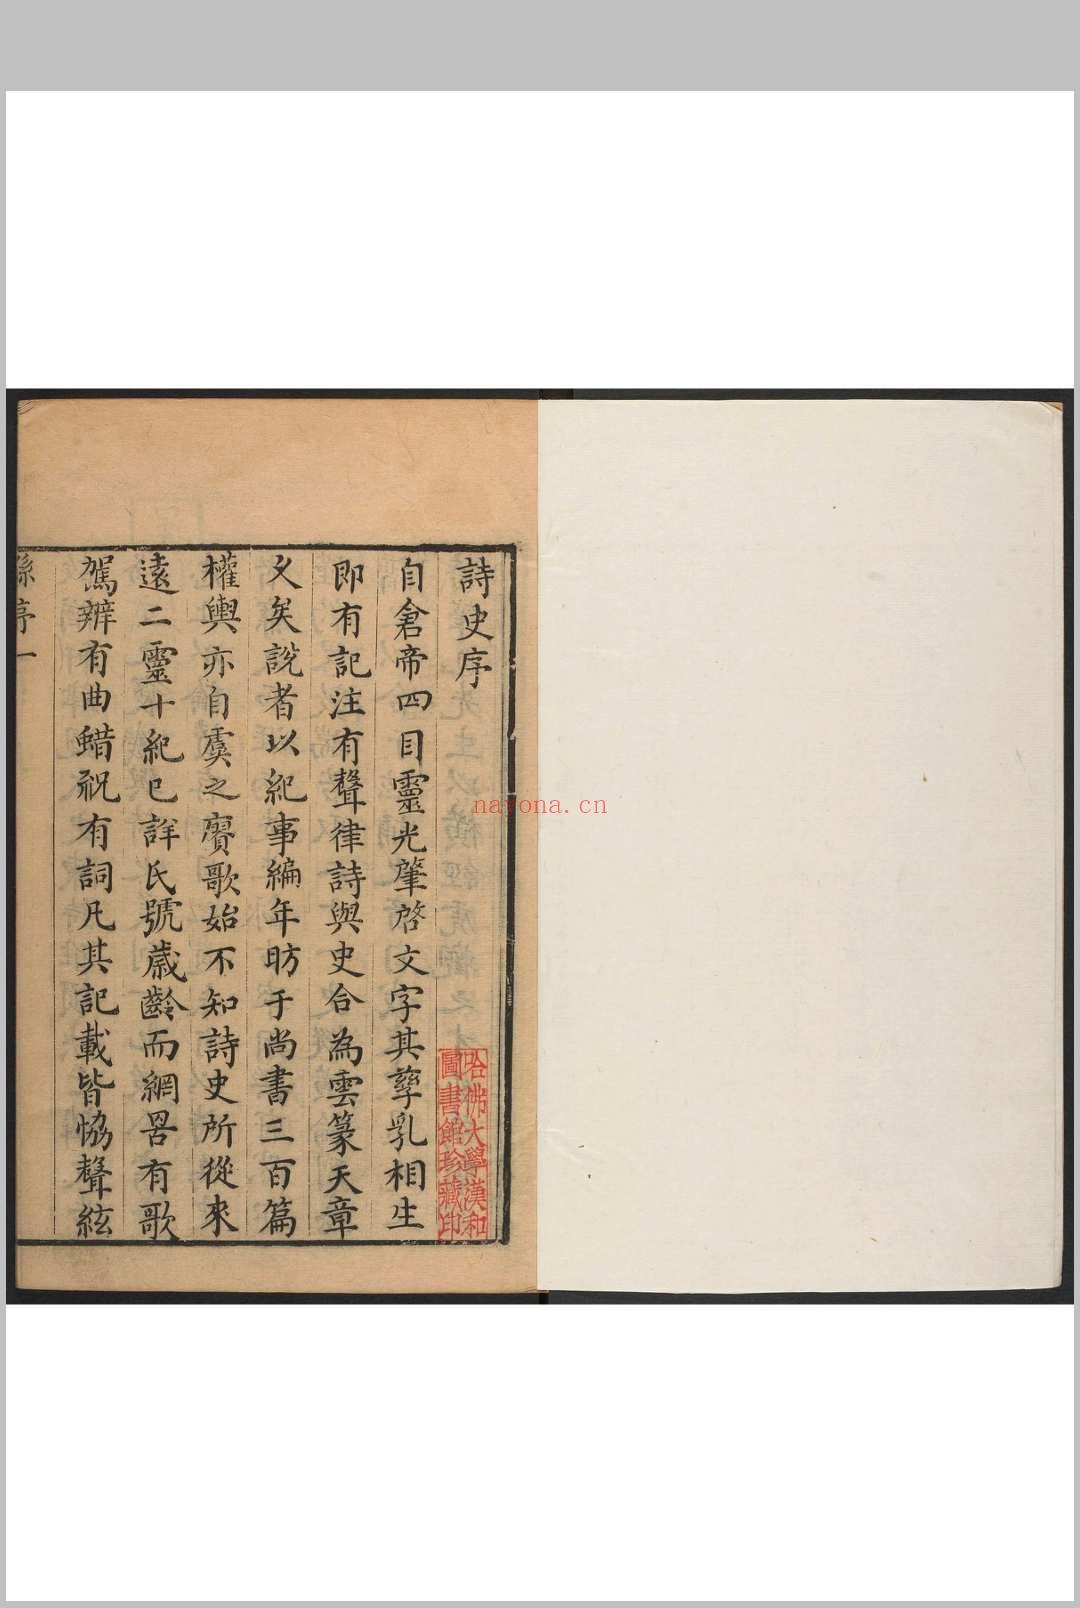 詩史序
自倉帝四目靈光肇啓文字其孳乳相生
即有記注有聲律詩與史合為雲篆天章
久矣說者以紀事編年昉于尚書三百篇
權輿亦自虞之賡歌始不知詩史所從來
遠二靈十紀已詳氏號歲齡而網罟有歌
駕辨有曲蜡祝有詞凡其記載皆恊聲絃
孫序一
哈佛大學漢和
圖書館珍藏印
nayona.cn